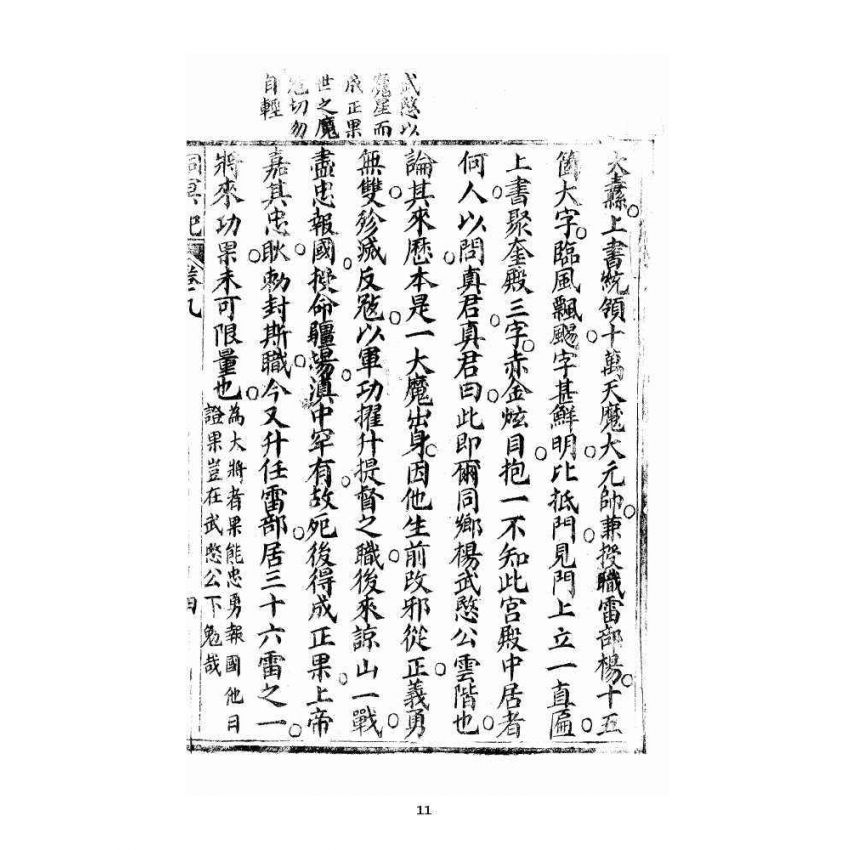 武愍以
魔星而
成正果
世之魔
冠切勿
自輕
大纛上書統領十萬天魔大元帥兼授職雷部楊十五
箇大字臨風飄颺字甚鮮明比抵門見門上立一直匾
上書聚奎殿三字赤金炫目抱一不知此宮殿中居者
何人以問真君真君曰此即爾同鄉楊武愍公雲階也
論其來歷本是一大魔出身因他生前改邪從正義勇
無雙殄滅反冦以軍功擢升提督之職後來諒山一戰
盡忠報國授命疆場滇中罕有故死後得成正果上帝
嘉其忠耿勅封斯職今又升任雷部居三十六雷之一
將來功果未可限量也為大將者果能忠勇報國他日
證果豈在武愍公下勉哉
洞冥記 卷九 四
11